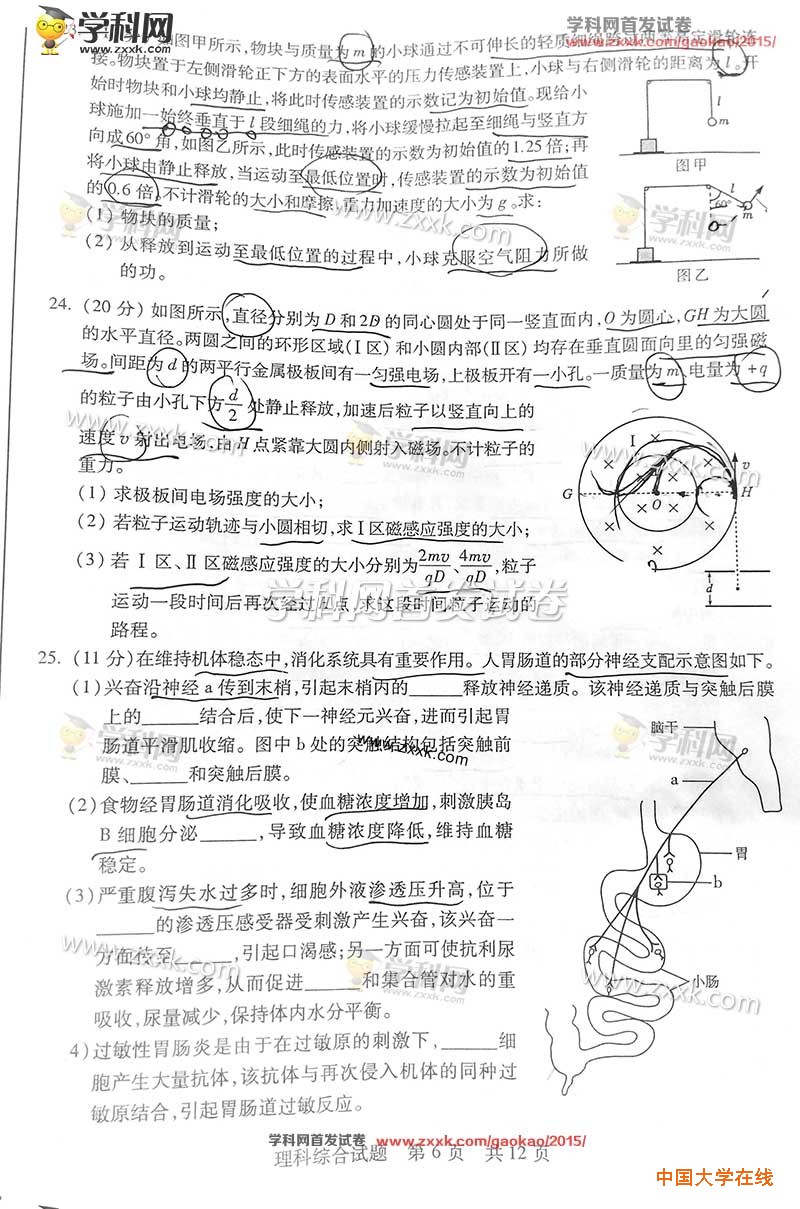 学科网首发试卷 www.zxxk.com/gaokao/2015/
学科网
www.zxxk.com
如图甲所示,物块与质量为m的小球通过不可伸长的轻质细绳跨过两等高定滑轮连
接。物块置于左侧滑轮正下方的表面水平的压力传感装置上,小球与右侧滑轮的距离为l。开
始时物块和小球均静止,将此时传感装置的示数记为初始值。现给小
球施加一始终垂直于l段细绳的力,将小球缓慢拉起至细绳与竖直方
向成60°角,如图乙所示,此时传感装置的示数为初始值的1.25倍;再
将小球由静止释放,当运动至最低位置时,传感装置的示数为初始值
的0.6倍。不计滑轮的大小和摩擦,重力加速度的大小为g。求:
(1) 物块的质量;
(2) 从释放到运动至最低位置的过程中,小球克服空气阻力所做
的功。
l
m
图甲
l
60°
m
图乙
24. (20分) 如图所示,直径分别为D和2D的同心圆处于同一竖直面内,O为圆心,GH为大圆
的水平直径。两圆之间的环形区域(Ⅰ区) 和小圆内部(Ⅱ区) 均存在垂直圆面向里的匀强磁
场。间距为d的两平行金属极板间有一匀强电场,上极板开有一小孔。一质量为m、电量为+q
的粒子由小孔下方d/2处静止释放,加速后粒子以竖直向上的
速度v射出电场,由H点紧靠大圆内侧射入磁场。不计粒子的
重力。
(1) 求极板间电场强度的大小;
(2) 若粒子运动轨迹与小圆相切,求Ⅰ区磁感应强度的大小;
(3) 若Ⅰ区、Ⅱ区磁感应强度的大小分别为2mv/qD、4mv/qD,粒子
运动一段时间后再次经过H点,求这段时间粒子运动的
路程。
Ⅰ
v
G
O
H
d
25. (11分)在维持机体稳态中,消化系统具有重要作用。人胃肠道的部分神经支配示意图如下。
(1)兴奋沿神经a传到末梢,引起末梢内的______释放神经递质。该神经递质与突触后膜
上的______结合后,使下一神经元兴奋,进而引起胃
肠道平滑肌收缩。图中b处的突触结构包括突触前
膜、______和突触后膜。
(2)食物经胃肠道消化吸收,使血糖浓度增加,刺激胰岛
B细胞分泌______,导致血糖浓度降低,维持血糖
稳定。
(3)严重腹泻失水过多时,细胞外液渗透压升高,位于
______的渗透压感受器受刺激产生兴奋,该兴奋一
方面传至______,引起口渴感;另一方面可使抗利尿
激素释放增多,从而促进______和集合管对水的重
吸收,尿量减少,保持体内水分平衡。
4)过敏性胃肠炎是由于在过敏原的刺激下,______细
胞产生大量抗体,该抗体与再次侵入机体的同种过
敏原结合,引起胃肠道过敏反应。
脑干
a
胃
b
小肠
学科网首发试卷 www.zxxk.com/gaokao/2015/
理科综合试题 第6页 共12页
中国大学在线